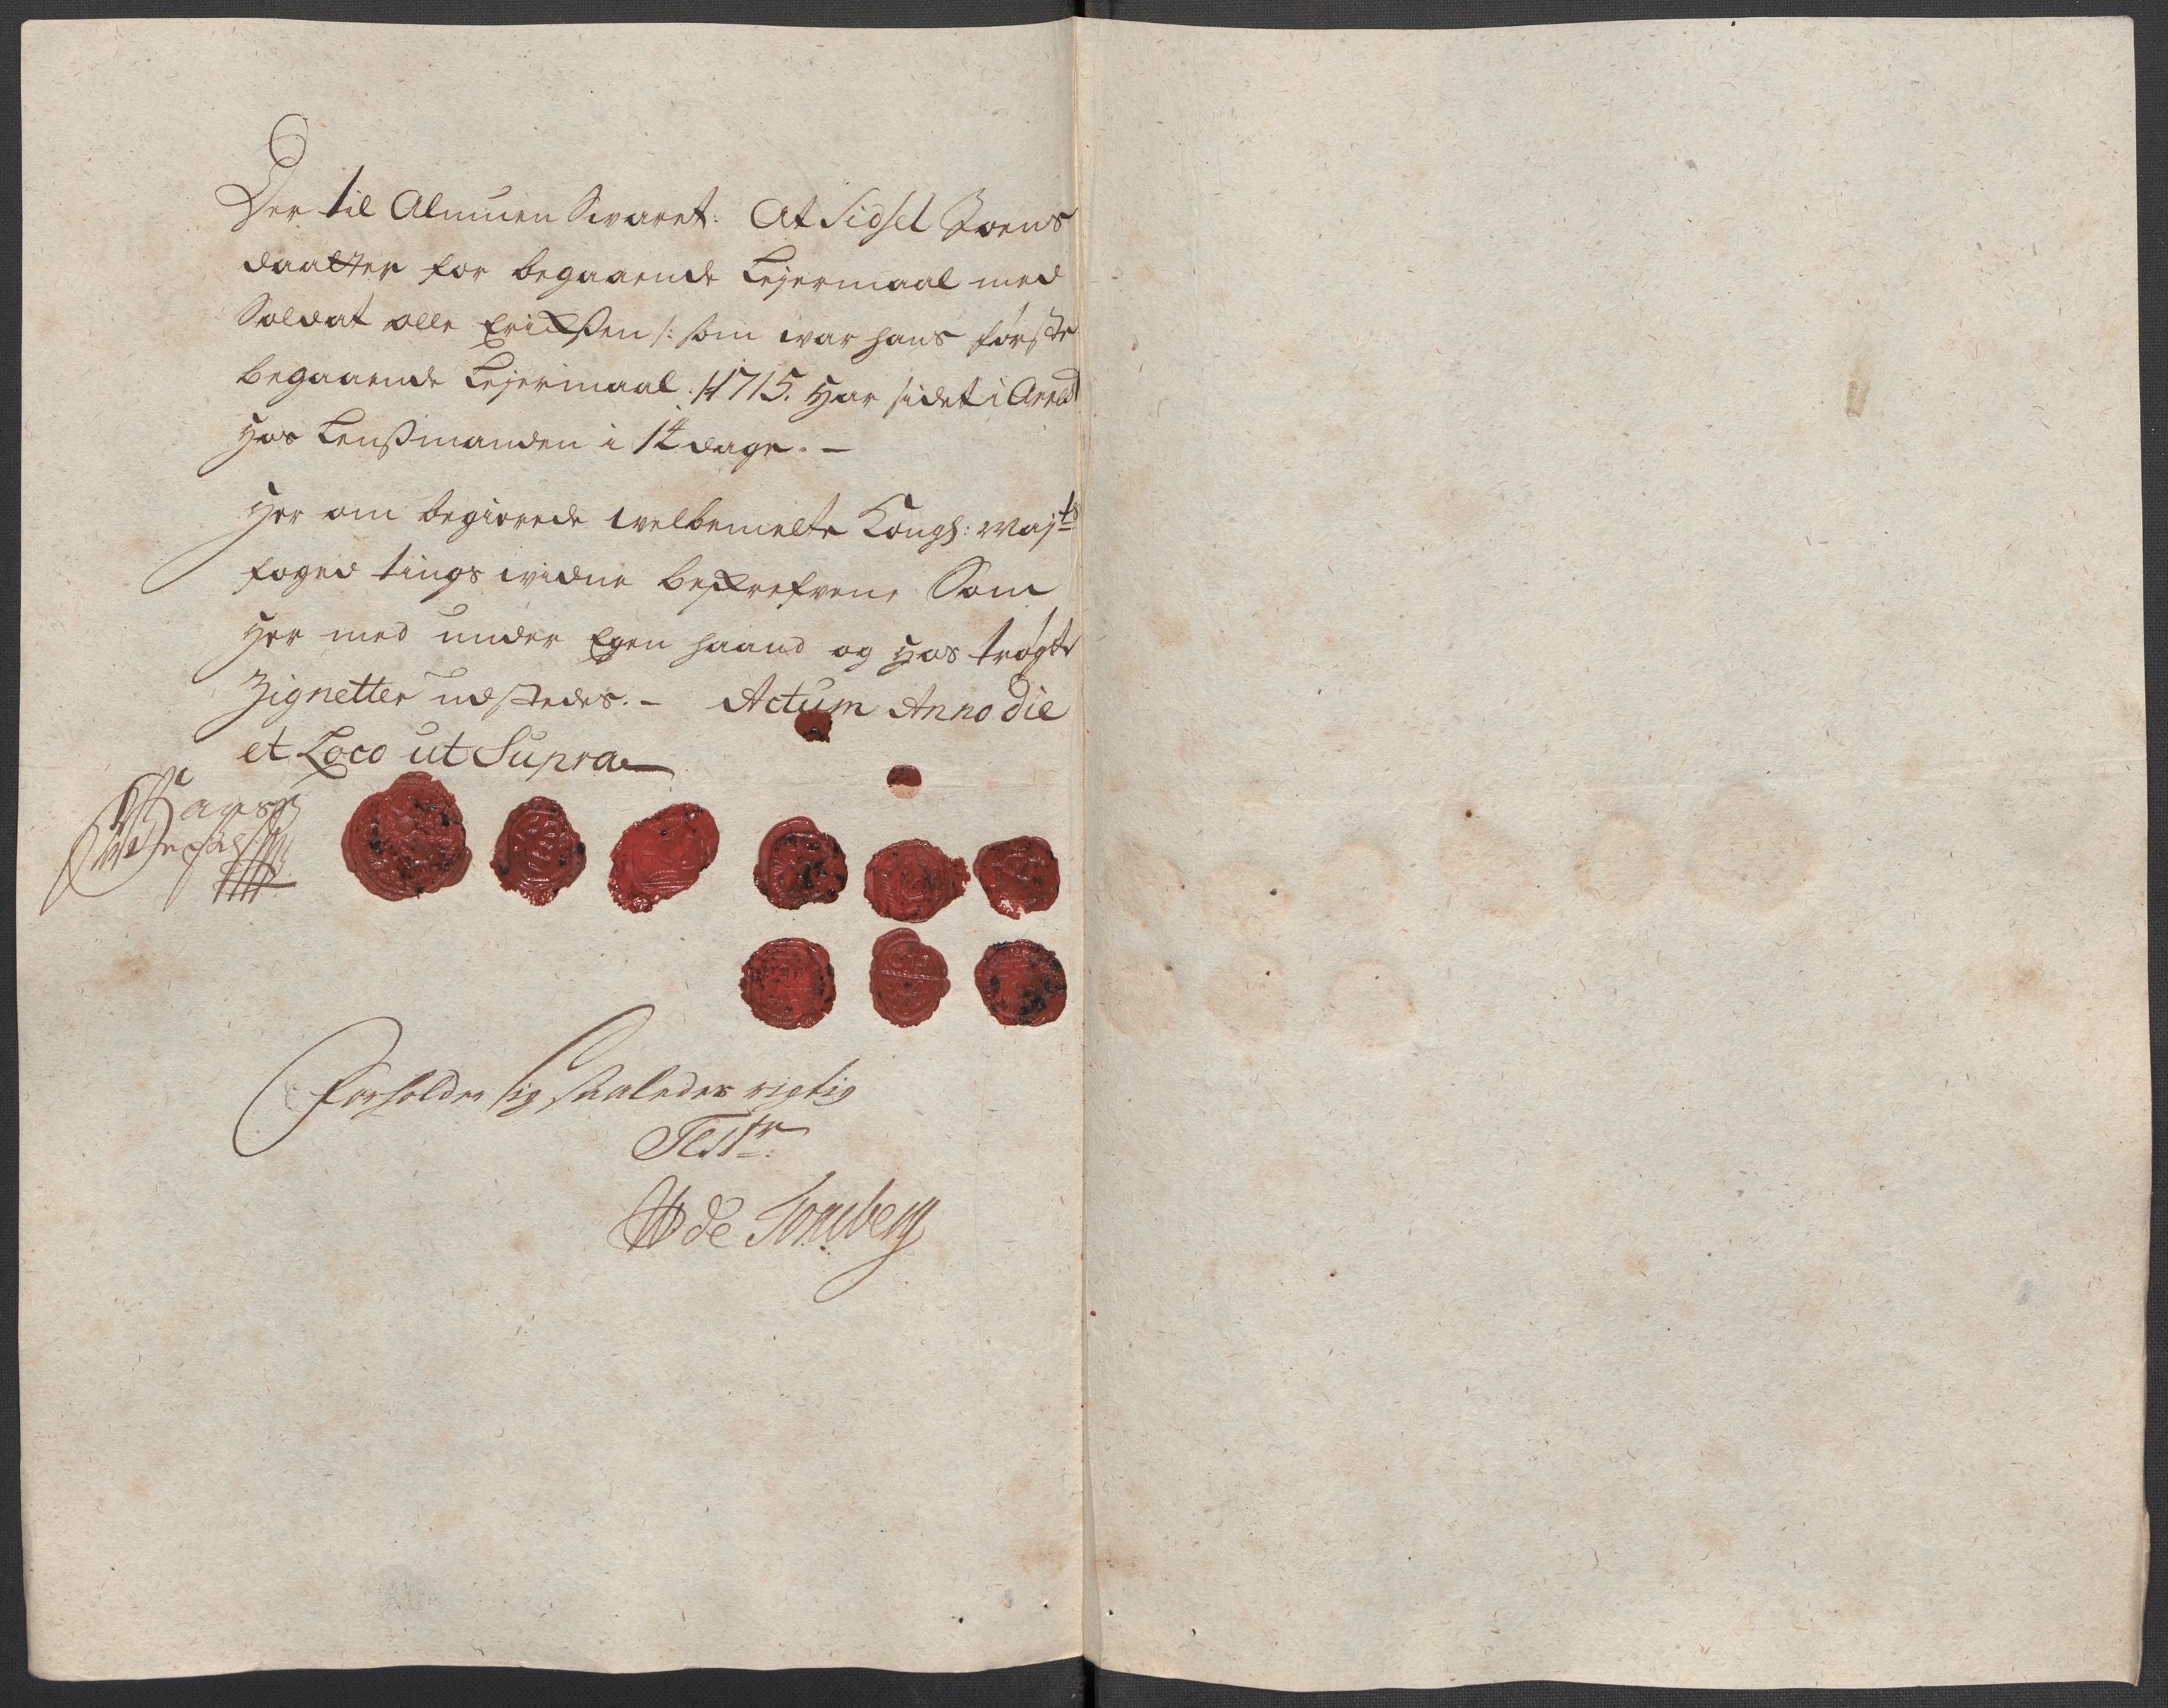 Der til Almuen Svaret: At Sidsel Joens
daatter for begaaende Lejermaal med
Soldat olle Erichsen /: som war hans første
begaaende Lejermaal :/ 1715. Har sidet i Arrest
Hos Lensmanden i 14 dage. -
Her om begierede welbemelte Kongl: Maj:ts
foged tings widne beskrefvene Som
Her med under Egen haand og Hos trøgte
Zignetter udstedes. - Actum Anno die
et Loco ut Supra
Forholder sig saaledes rigtig
Test:
de